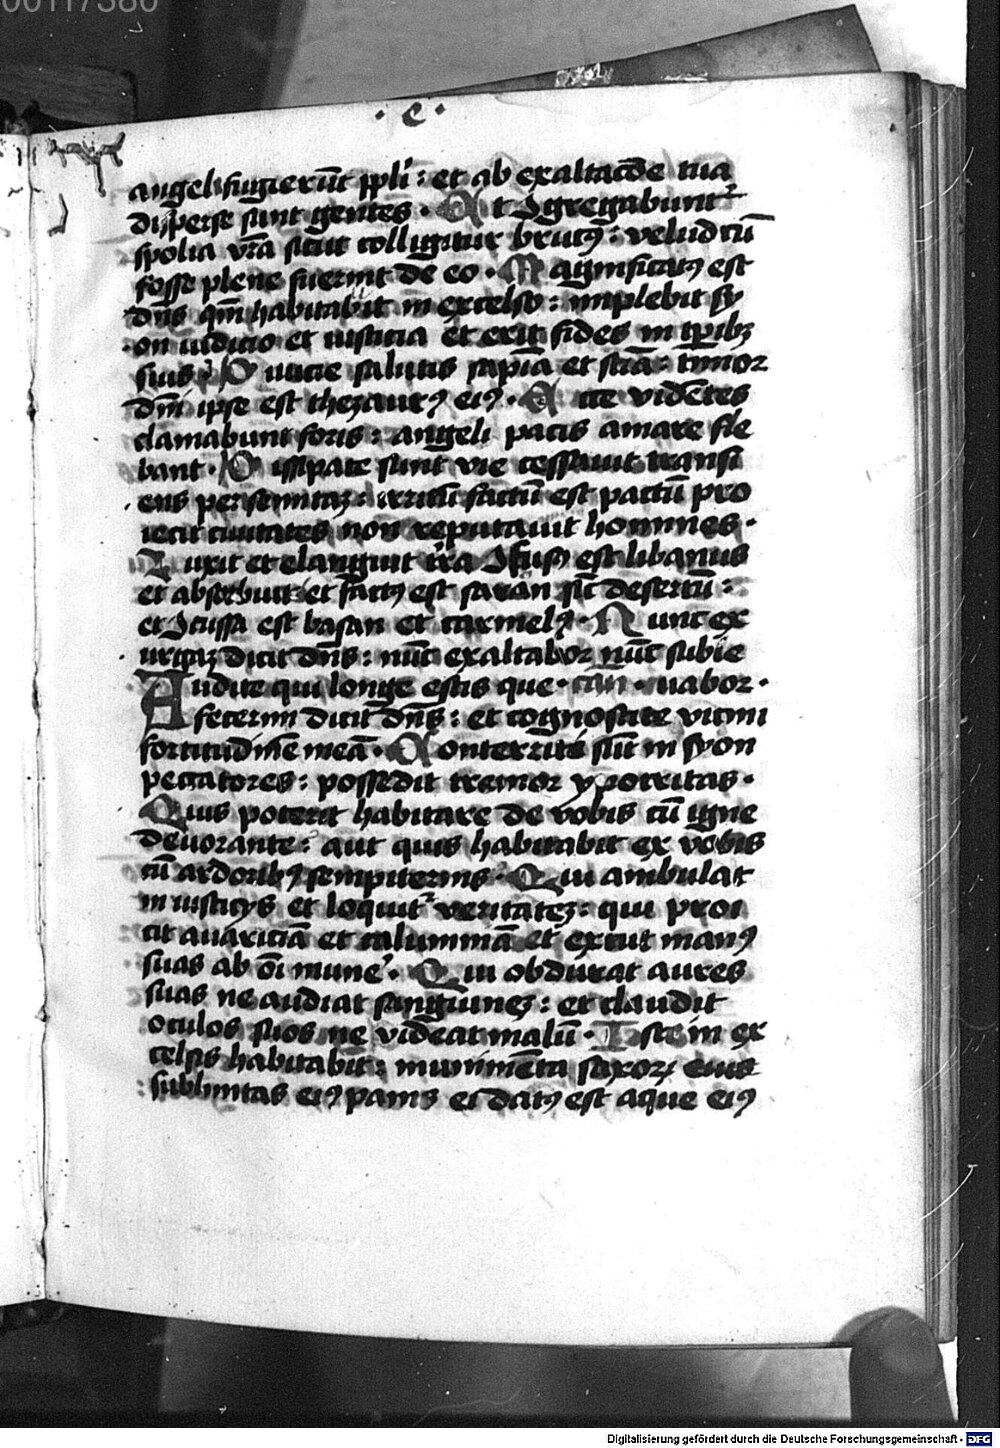 00117380
· c ·
angeli fugierūt ppli : et ab exaltacōe tua
disperse sunt gentes · Et 9gregabunt᷑
spolia vr̄a sicut colligitur bruc9 : velud cū
fosse plene fuerint de eo · Magnificat9 est
dn̄s qm̄ habitabit in excelso : implebit sy
on iudicio et iusticia et erit fides in tp̄ibꝫ
suis Diuicie salutis sapiā et sciā : timor
dn̄i ipse est thezaur9 ei9 · Ecce vidētes
clamabunt foris : angeli pacis amare fle
bant · Dissipate sunt vie cessauit transi
ens per semitaꝫ : irritū factū est pactū pro
iecit ciuitates non reputauit homines ·
Luxit et elanguit tr̄a 9fus9 est libanus
et absorbuit et fact9 est saran sic̄ desertū :
et 9cussa est basan et carmel9 · Nunc ex
urgaꝫ dicit dn̄s : nūc exaltabor nūc suble
Audite qui longe estis que · uabor ·
fecerim dicit dn̄s : et cognoscite vicini
fortitudinē meā · Conterriti sūt in syon
peccatores : possedit tremor ypocritas ·
Quis poterit habitare de vobis cū igne
deuorante : aut quis habitabit ex vobis
cū ardorib9 sempiternis · Qui ambulat
in iusticys et loquit᷑ veritateꝫ : qui proi
cit auariciā et calumniā et excut man9
suas ab oī mune᷑ · Qui obdurat aures
suas ne audiat sanguineꝫ : et claudit
oculos suos ne videat malū · Iste in ex
celsis habitabit : munimēta saxoꝝ eius
sublimitas ei9 panis ei dat9 est aque ei9
Digitalisierung gefördert durch die Deutsche Forschungsgemeinschaft - DFG